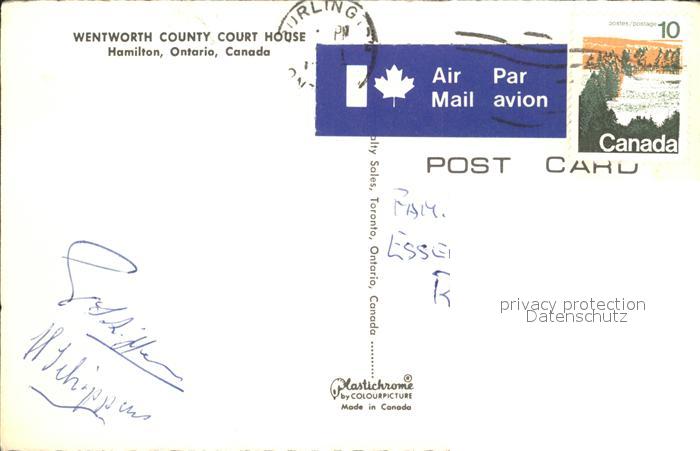 WENTWORTH COUNTY COURT HOUSE
Hamilton, Ontario, Canada
Air Par
Mail avion
postes/postage 10
Canada
POST CARD
alty Sales, Toronto, Ontario, Canada
FAM.
ESSE
R
privacy protection
Datenschutz
Schippers
Plastichrome®
by COLOURPICTURE
Made in Canada